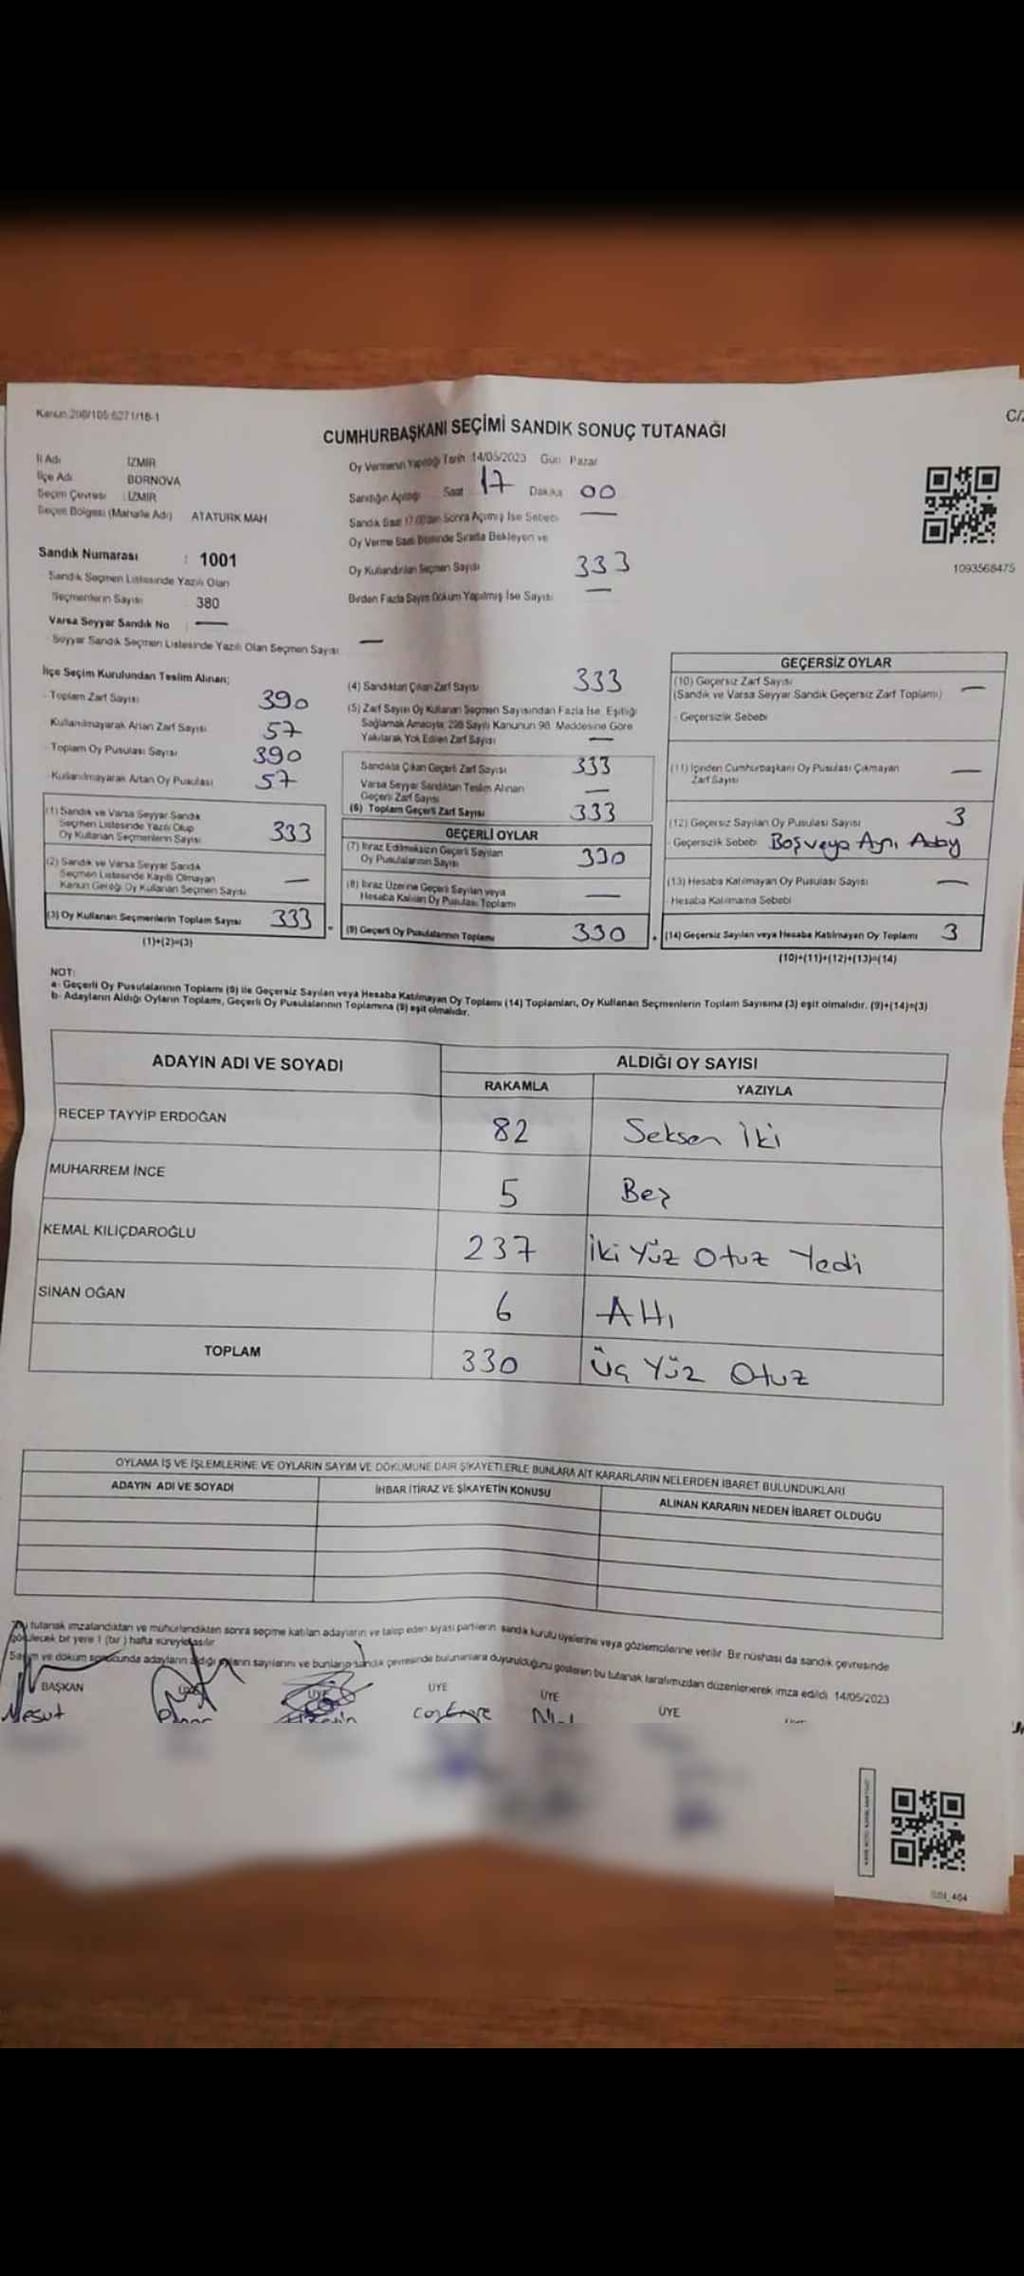 Kanun 298/105 6271/18-1
C/2
CUMHURBAŞKANI SEÇİMİ SANDIK SONUÇ TUTANAĞI
İl Adı İZMİR
İlçe Adı BORNOVA
Seçim Çevresi : İZMİR
Seçim Bölgesi (Mahalle Adı) ATATÜRK MAH
Sandık Numarası : 1001
Sandık Seçmen Listesinde Yazılı Olan
Seçmenlerin Sayısı 380
Varsa Seyyar Sandık No —
Seyyar Sandık Seçmen Listesinde Yazılı Olan Seçmen Sayısı —
Oy Vermenin Yapıldığı Tarih 14/05/2023 Gün Pazar
Sandığın Açılışı Saat 17 Dakika 00
Sandık Saat 17:00'den Sonra Açılmış İse Sebebi —
Oy Verme Saati Bitiminde Sırada Bekleyen ve
Oy Kullandırılan Seçmen Sayısı 333
Birden Fazla Sayım Döküm Yapılmış İse Sayısı —
1093568475
İlçe Seçim Kurulundan Teslim Alınan;
- Toplam Zarf Sayısı 390
Kullanılmayarak Artan Zarf Sayısı 57
- Toplam Oy Pusulası Sayısı 390
- Kullanılmayarak Artan Oy Pusulası 57
(1) Sandık ve Varsa Seyyar Sandık
Seçmen Listesinde Yazılı Olup
Oy Kullanan Seçmenlerin Sayısı 333
(2) Sandık ve Varsa Seyyar Sandık
Seçmen Listesinde Kayıtlı Olmayan
Kanun Gereği Oy Kullanan Seçmen Sayısı —
(3) Oy Kullanan Seçmenlerin Toplam Sayısı 333
(1)+(2)=(3)
(4) Sandıktan Çıkan Zarf Sayısı 333
(5) Zarf Sayısı Oy Kullanan Seçmen Sayısından Fazla İse, Eşitliği
Sağlamak Amacıyla, 298 Sayılı Kanunun 98. Maddesine Göre
Yakılarak Yok Edilen Zarf Sayısı —
Sandıkta Çıkan Geçerli Zarf Sayısı 333
Varsa Seyyar Sandıktan Teslim Alınan
Geçerli Zarf Sayısı —
(6) Toplam Geçerli Zarf Sayısı 333
GEÇERLİ OYLAR
(7) İtiraz Edilmeksizin Geçerli Sayılan
Oy Pusulalarının Sayısı 330
(8) İtiraz Üzerine Geçerli Sayılan veya
Hesaba Katılan Oy Pusulası Toplamı —
(9) Geçerli Oy Pusulalarının Toplamı 330
GEÇERSİZ OYLAR
(10) Geçersiz Zarf Sayısı —
(Sandık ve Varsa Seyyar Sandık Geçersiz Zarf Toplamı)
- Geçersizlik Sebebi
(11) İçinden Cumhurbaşkanı Oy Pusulası Çıkmayan
Zarf Sayısı —
(12) Geçersiz Sayılan Oy Pusulası Sayısı 3
- Geçersizlik Sebebi Boş veya Aynı Aday
(13) Hesaba Katılmayan Oy Pusulası Sayısı —
- Hesaba Katılmama Sebebi
(14) Geçersiz Sayılan veya Hesaba Katılmayan Oy Toplamı 3
(10)+(11)+(12)+(13)=(14)
NOT:
a- Geçerli Oy Pusulalarının Toplamı (9) ile Geçersiz Sayılan veya Hesaba Katılmayan Oy Toplamı (14) Toplamları, Oy Kullanan Seçmenlerin Toplam Sayısına (3) eşit olmalıdır. (9)+(14)=(3)
b- Adayların Aldığı Oyların Toplamı, Geçerli Oy Pusulalarının Toplamına (9) eşit olmalıdır.
ADAYIN ADI VE SOYADI ALDIĞI OY SAYISI
RAKAMLA YAZIYLA
RECEP TAYYİP ERDOĞAN 82 Seksen İki
MUHARREM İNCE 5 Beş
KEMAL KILIÇDAROĞLU 237 İki Yüz Otuz Yedi
SİNAN OĞAN 6 Altı
TOPLAM 330 Üç Yüz Otuz
OYLAMA İŞ VE İŞLEMLERİNE VE OYLARIN SAYIM VE DÖKÜMÜNE DAİR ŞİKAYETLERLE BUNLARA AİT KARARLARIN NELERDEN İBARET BULUNDUKLARI
ADAYIN ADI VE SOYADI İHBAR İTİRAZ VE ŞİKAYETİN KONUSU ALINAN KARARIN NEDEN İBARET OLDUĞU
tutanak imzalandıktan ve mühürlendikten sonra seçime katılan adayların ve talep eden siyasi partilerin sandık kurulu üyelerine veya gözlemcilerine verilir. Bir nüshası da sandık çevresinde
görülecek bir yere 1 (bir) hafta süreyle asılır
Sayım ve döküm sonucunda adayların aldığı oyların sayılarını ve bunların sandık çevresinde bulunanlara duyurulduğunu gösteren bu tutanak tarafımızdan düzenlenerek imza edildi 14/05/2023
BAŞKAN ÜYE ÜYE ÜYE ÜYE ÜYE
Mesut